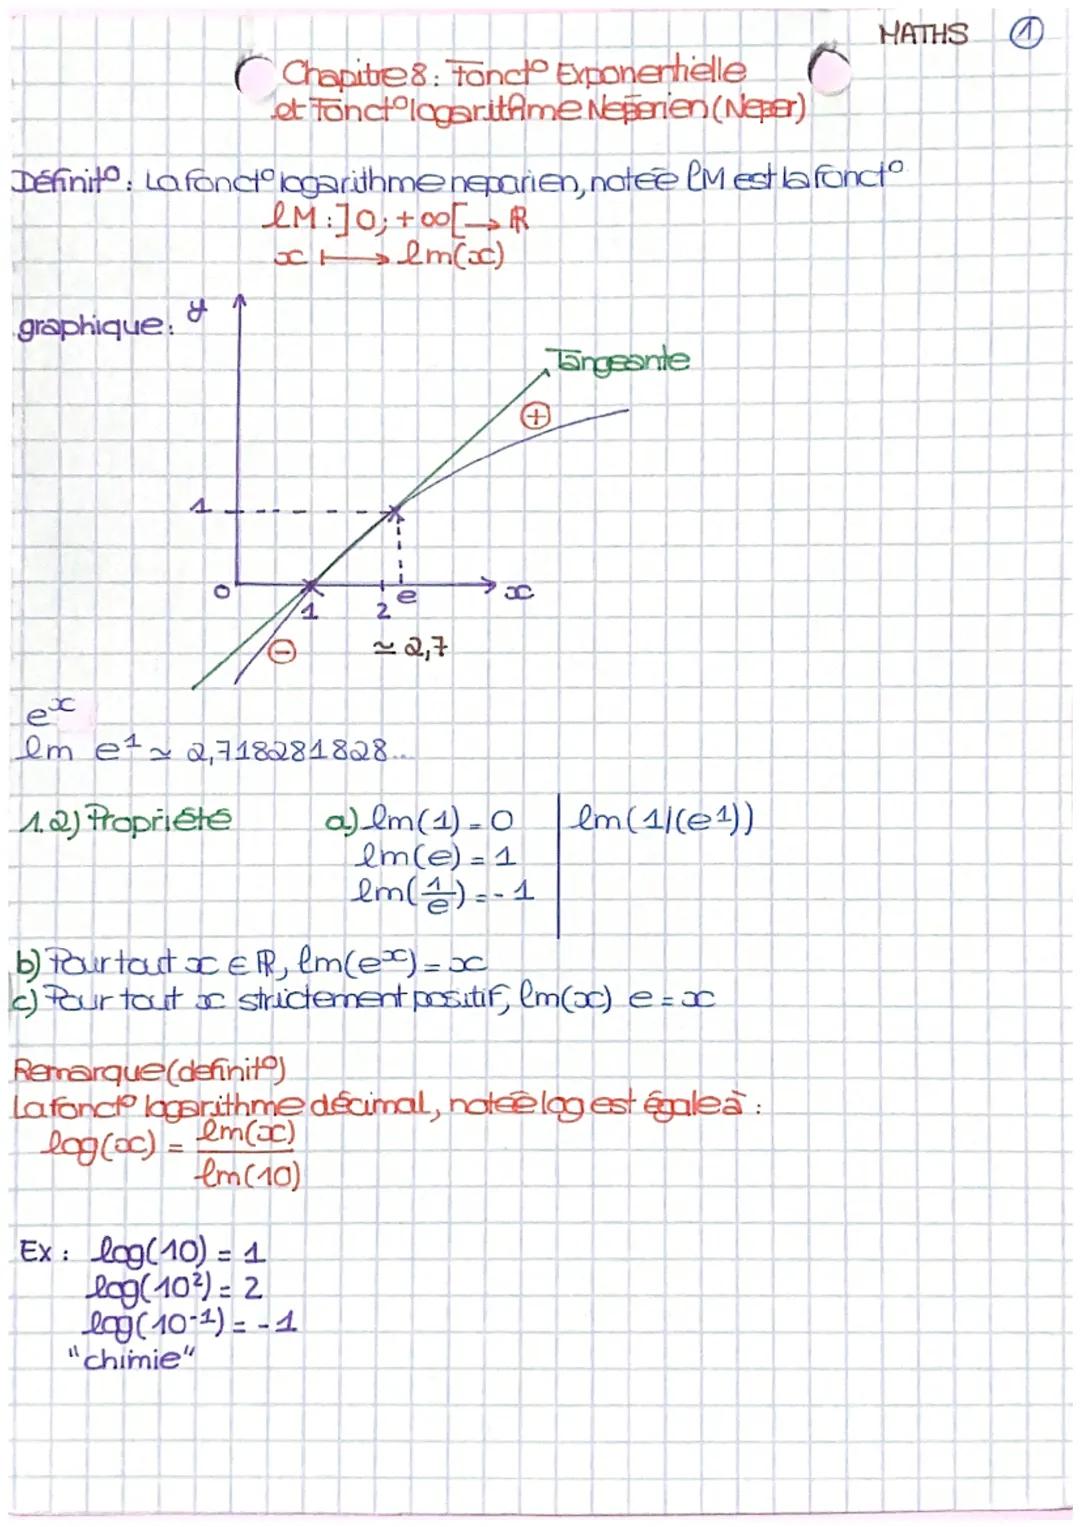 MATHS ①
Chapitre 8 : Fonct° Exponentielle
et Fonct° logarithme Neperien (Neper)
Définit° : La fonct° logarithme neparien, notée lM est la fonct°
lM : ]0; +∞[ → ℝ
x ↦ lm(x)
graphique :
y
Tangeante
+
1
0
1
2
e
x
-
≃ 2,7
e^x
lm e^1 ≃ 2,718281828...
1.2) Propriété a) lm(1) = 0 | lm(1/(e1))
lm(e) = 1
lm(1/e) = -1
b) Pour tout x ∈ ℝ, lm(e^x) = x
c) Pour tout x strictement positif, lm(x) e = x
Remarque (definit°)
La fonct° logarithme décimal, notée log est égale à :
log(x) = lm(x)/lm(10)
Ex : log(10) = 1
log(10²) = 2
log(10-1) = -1
"chimie"